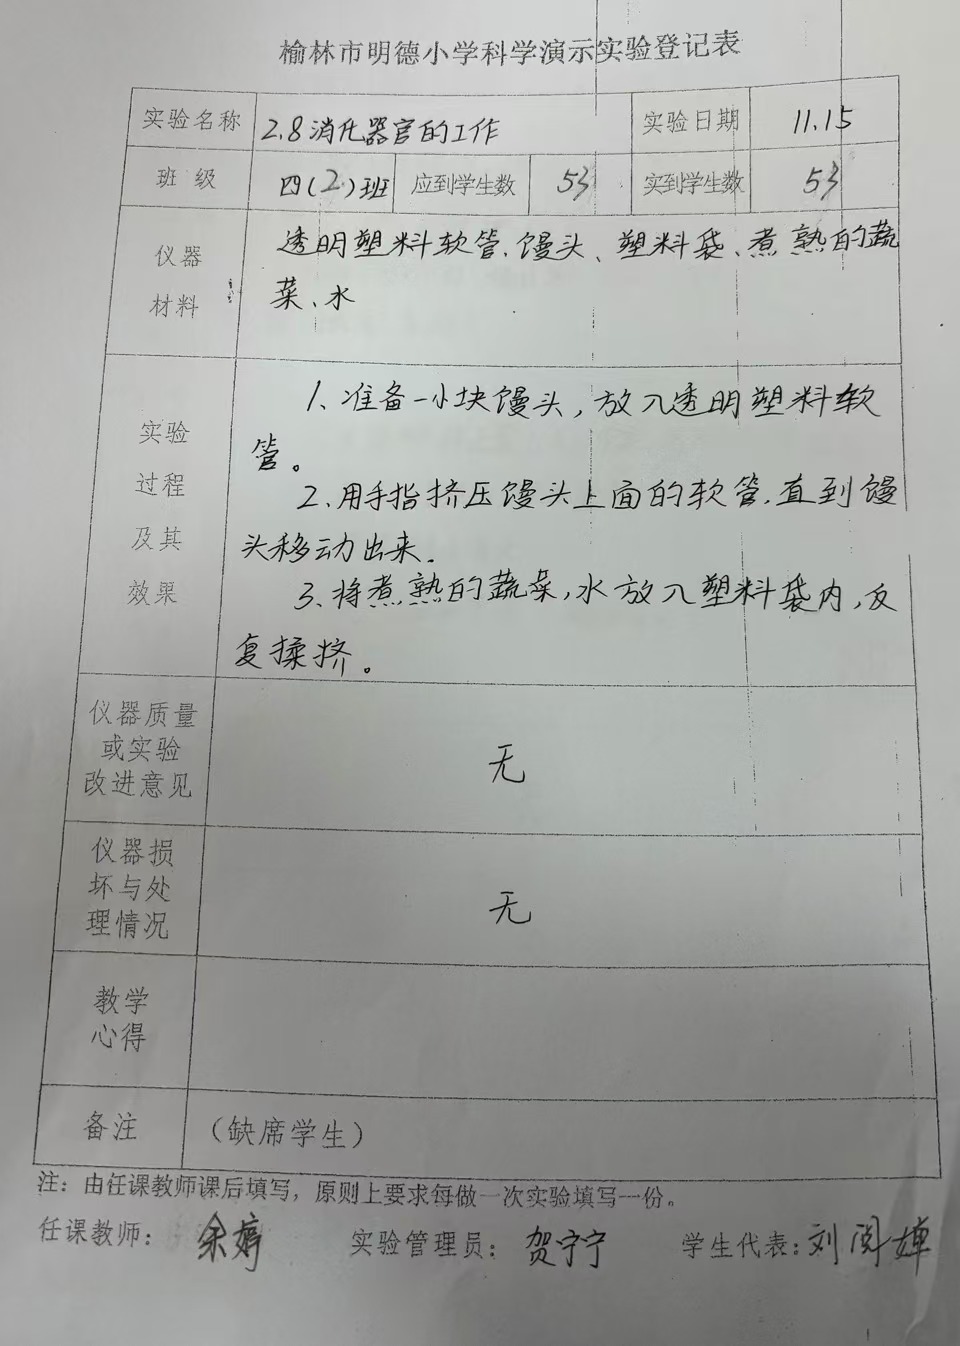 榆林市明德小学科学演示实验登记表
实验名称 2.8消化器官的工作 实验日期 11.15
班级 四(2)班 应到学生数 53 实到学生数 53
仪器
材料
透明塑料软管、馒头、塑料袋、煮熟的蔬
菜、水
实验
过程
及其
效果
1、准备一小块馒头,放入透明塑料软
管。
2、用手指挤压馒头上面的软管,直到馒
头移动出来.
3、将煮熟的蔬菜,水放入塑料袋内,反
复揉挤。
仪器质量
或实验
改进意见
无
仪器损
坏与处
理情况
无
教学
心得
备注 (缺席学生)
注:由任课教师课后填写,原则上要求每做一次实验填写一份。
任课教师: 余婷 实验管理员: 贺宁宁 学生代表: 刘